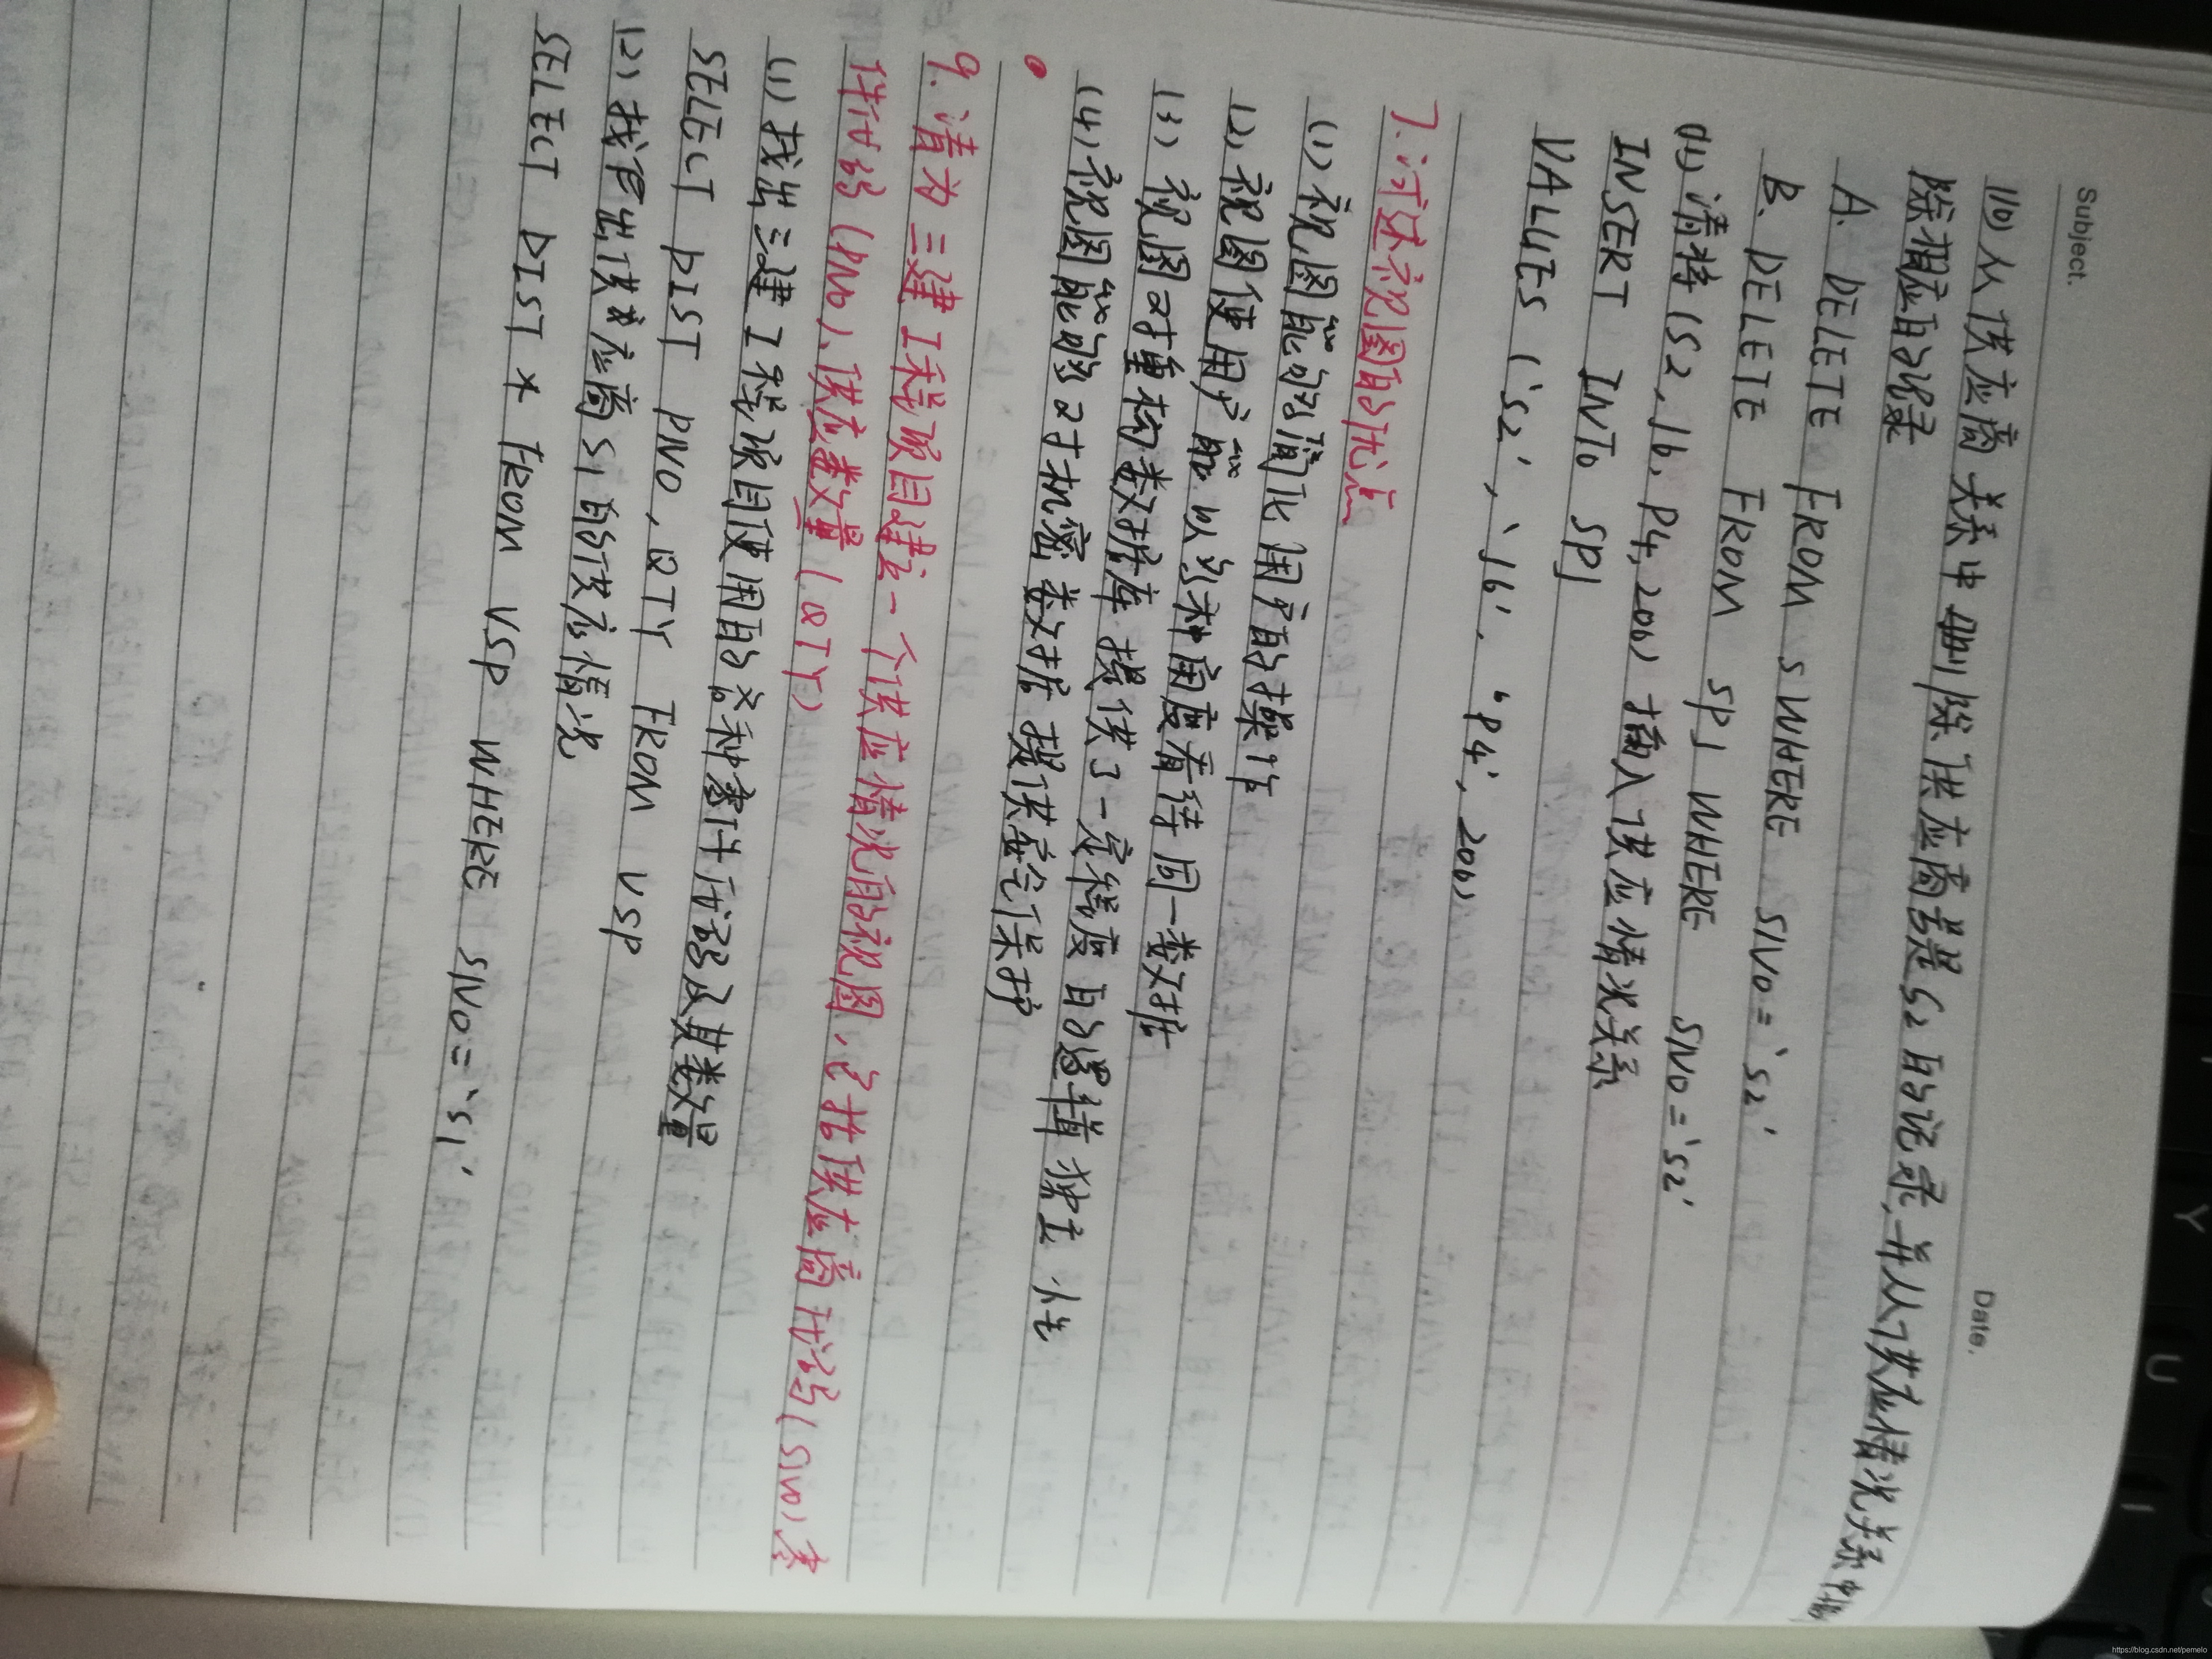 Subject.
Date.
(10) 从供应商关系中删除供应商号是S2的记录,并从供应情况关系中删
除相应的记录
A. DELETE FROM S WHERE SNO = 'S2'
B. DELETE FROM SPJ WHERE SNO = 'S2'
(11) 请将(S2, J6, P4, 200) 插入供应情况关系
INSERT INTO SPJ
VALUES ('S2', 'J6', 'P4', 200)
7. 试述视图的优点
(1) 视图能够简化用户的操作
(2) 视图使用户能以多种角度看待同一数据
(3) 视图对重构数据库提供了一定程度的逻辑独立性
(4) 视图能够对机密数据提供安全保护
9. 请为三建工程项目建立一个供应情况的视图,包括供应商代码(SNO)、零
件代码(PNO)、供应数量(QTY)
(1) 找出三建工程项目使用的各种零件代码及其数量
SELECT DIST PNO, QTY FROM VSP
(2) 找出供应商S1的供应情况
SELECT DIST * FROM VSP WHERE SNO = 'S1'
Y
U
I
https://blog.csdn.net/pemelo